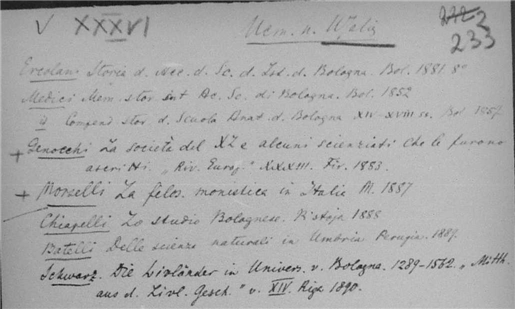 V XXXVI
Uem. u. Italia
222 2
233
Ercolani Storia d. Acc. d. Sc. d. Ist. d. Bologna. Bol. 1881. 8°
Medici Mem. stor. int Ac. Sc. di Bologna. Bol. 1852
Compend stor. d. Scuola Anat. d. Bologna XIV-XVIII sc. Bol 1857.
+ Genocchi La società dei XL e alcuni scienziati che le furono
ascritti. „Riv. Europ." XXXIII. Fir. 1883.
+ Morselli La filos. monistica in Italia M. 1887
Chiapelli Lo studio Bolognese. Pistoja 1888
Batelli Delle scienze naturali in Umbria Perugia. 1889.
Schwarz. Die Livländer in Univers. v. Bologna. 1289-1562. „Mitth.
aus d. Livl. Gesch." v. XIV. Riga 1890.